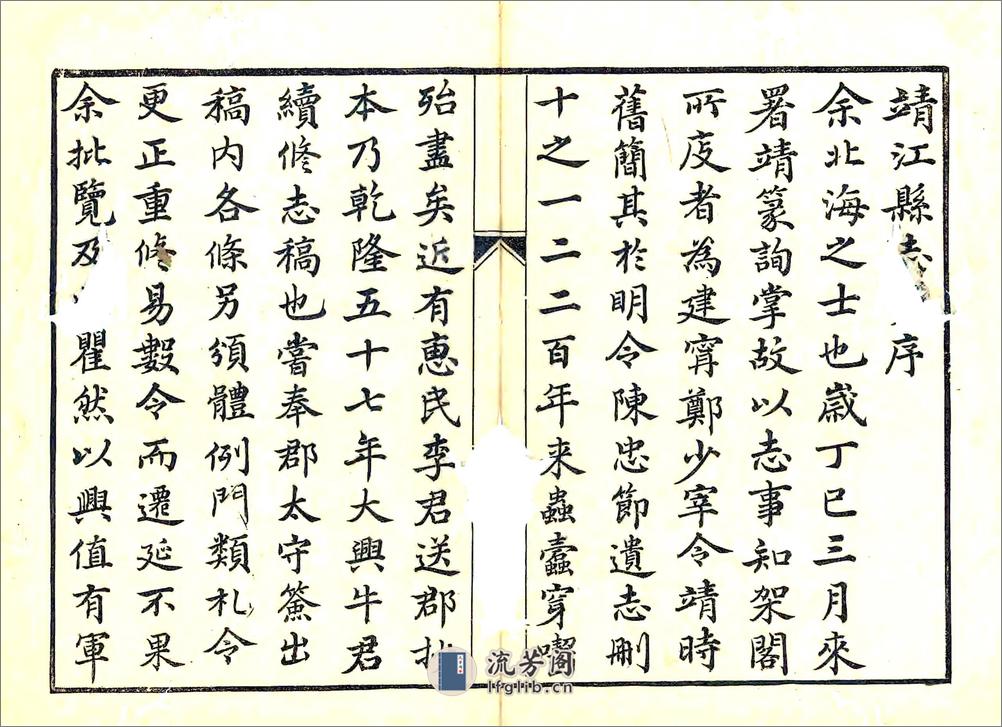 靖江縣志序
余北海之士也歲丁巳三月來
署靖篆詢掌故以志事知架閣
所庋者為建甯鄭少宰令靖時
舊簡其於明令陳忠節遺志刪
十之一二二百年來蟲蠹穿囓
殆盡矣近有惠民李君送郡抄
本乃乾隆五十七年大興牛君
續修志稿也嘗奉郡太守簽出
稿內各條另頒體例門類札令
更正重修易數令而遷延不果
余批覽及瞿然以興值有軍
流芳閣
lfglib.cn